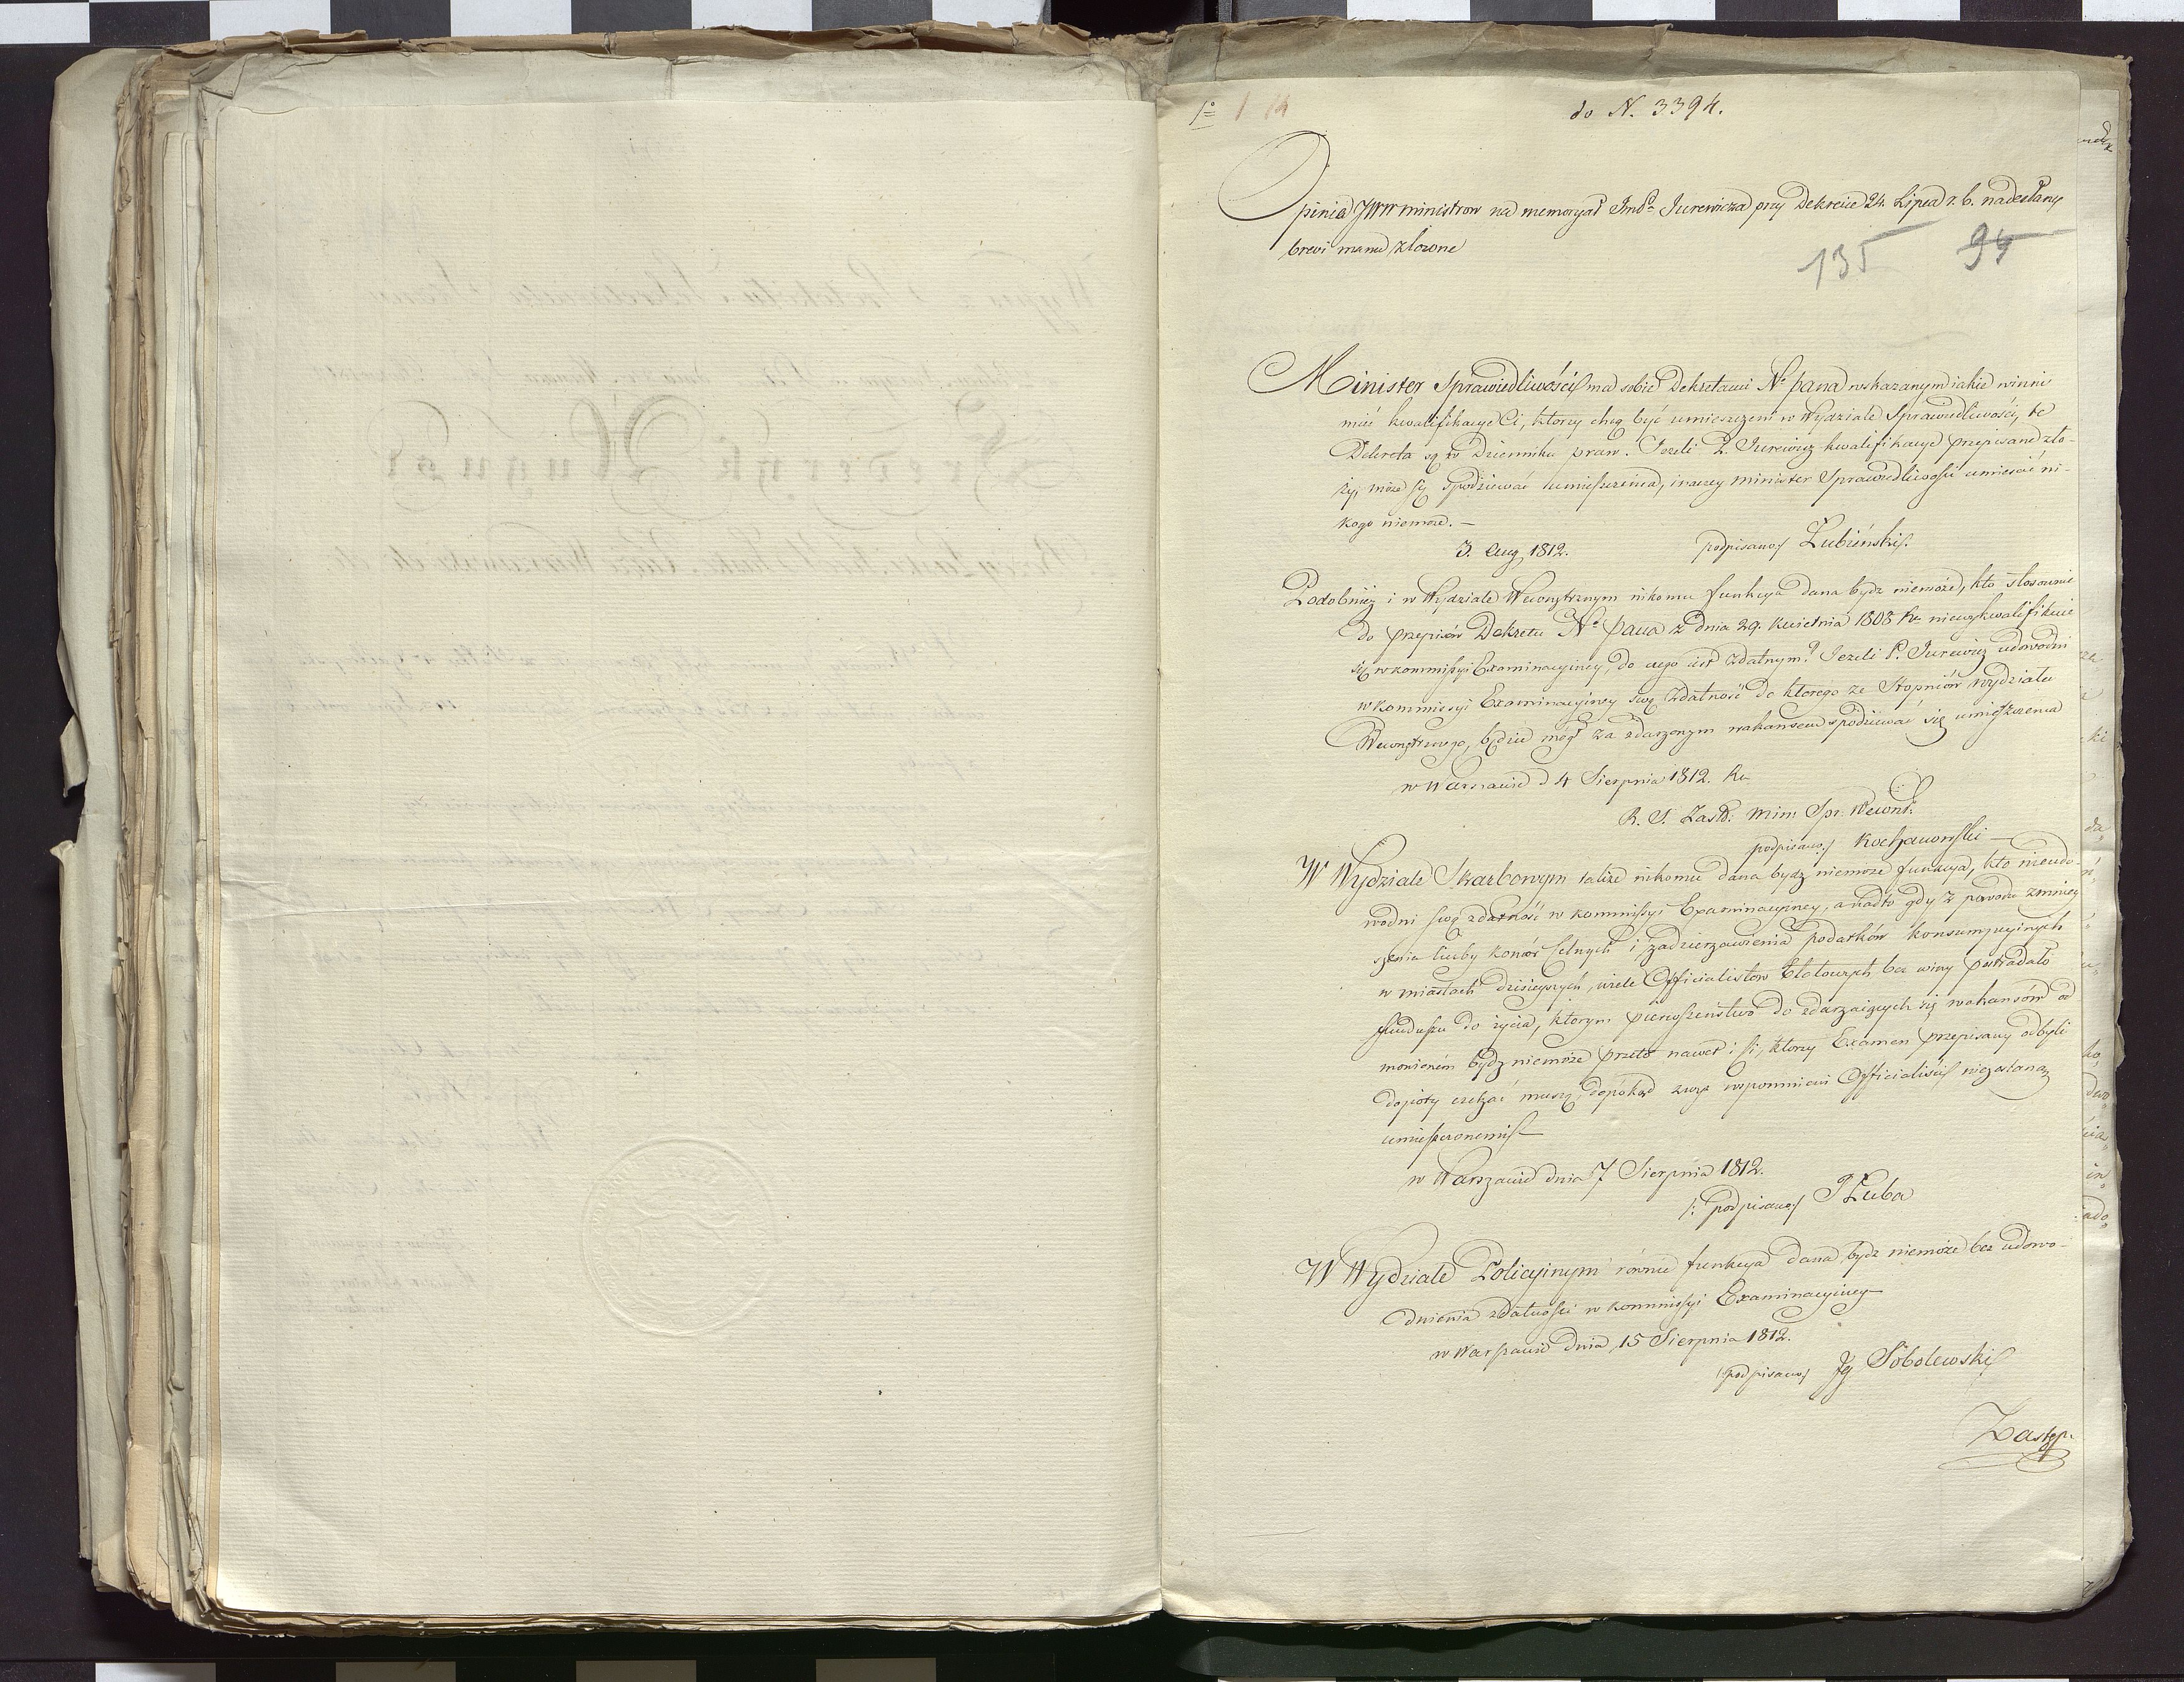 1º 1 14
do N. 3394.
Opinia JWW ministrow na memoryał Imć Jurewicza przy Dekrecie 24. Lipca r. b. nadesłany
brevi manu złożone
135 94
Minister Sprawiedliwości ma sobie Dekretami N. pana wskazanym iakie winni
mieć kwalifikacye Ci, ktorzy chcą być umieszczeni w Wydziale Sprawiedliwości, te
Dekreta są w Dzienniku praw. Jeżeli P. Jurewicz kwalifikacye przepisane zło-
ży, może się spodziewać umieszczenia, inaczey minister Sprawiedliwości umieścić ni-
kogo niemoże. —
3. Aug 1812. podpisano Łubiński.
Podobnież i w Wydziale Wewnętrznym nikomu funkcya dana bydz niemoże, kto stosownie
do przepisów Dekretu N. pana z dnia 29. kwietnia 1808 Rn niewykwalifikuie
się w kommissyi Examinacyiney, do czego iest zdatnym. Jeżeli P. Jurewicz udowodni
w kommissyi Examinacyiney swą zdatność do ktorego ze Stopniów wydziału
Wewnętrznego, będzie mógł za zdarzonym wakansem spodziewać się umieszczenia
w Warszawie d 4 Sierpnia 1812. Rn
R. S. Zastę. Min. Spr. Wewnt.
podpisano Kochanowski —
W Wydziale Skarbowym także nikomu dana bydz niemoże funkcya, kto nieudo-
wodni swą zdatność w kommissyi Examinacyiney, a nadto gdy z powodu zmniey
szenia liczby komór Celnych i zadzierzawienia podatków konsumpcyinych
w miastach dzisieyszych, wiele Officialistów Etatowych bez winy postradało
fundusz do życia, ktorym pierwszeństwo do zdarzaiących się wakansów od
mowioném bydz niemoże przeto nawet i Ci, ktorzy Examen przepisany odbyli
dopóty czekać muszą, dopókąd wyż wspomnieni Officialiści niezostaną
umieszczonemi
w Warszawie dnia 7 Sierpnia 1812.
/: podpisano/ J Łuba
W Wydziale Policyinym równie funkcya dana bydz niemoże bez udowo-
dnienia zdatności w kommissyi Examinacyiney
w Warszawie dnia 15 Sierpnia 1812.
/podpisano/ Jg Sobolewski
Zastęp.